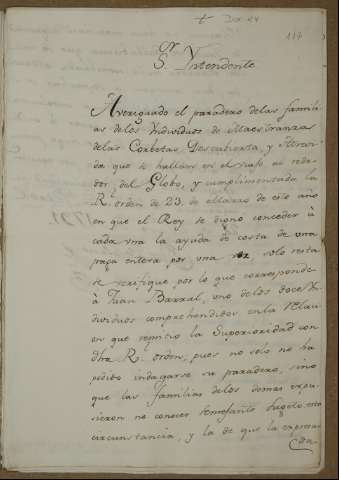 117
Sr. Yntendente
Averiguado el paradero de las famili
as de los Yndividuos de Maestranza
de las Corbetas Descubierta, y Atrevi
da que se hallan en el rede
dor del Globo, y cumplimentada la
Rl. orden de 23. de Marzo de este año
en que el Rey se dignó conceder á
cada una la ayuda de costa de una
paga entera por una vez solo resta
se verifique por lo que corresponde
à Juan Barral, uno de los doce Yn
dividuos comprehendidos en la Relaci
on que remitio la Superioridad con
dha Rl. orden, pues no solo no ha
podido indagarse su paradero, sino
que las familias de los demas expu
sieron no conocer semejante sugeto
circunstancia, y la de que la expresa